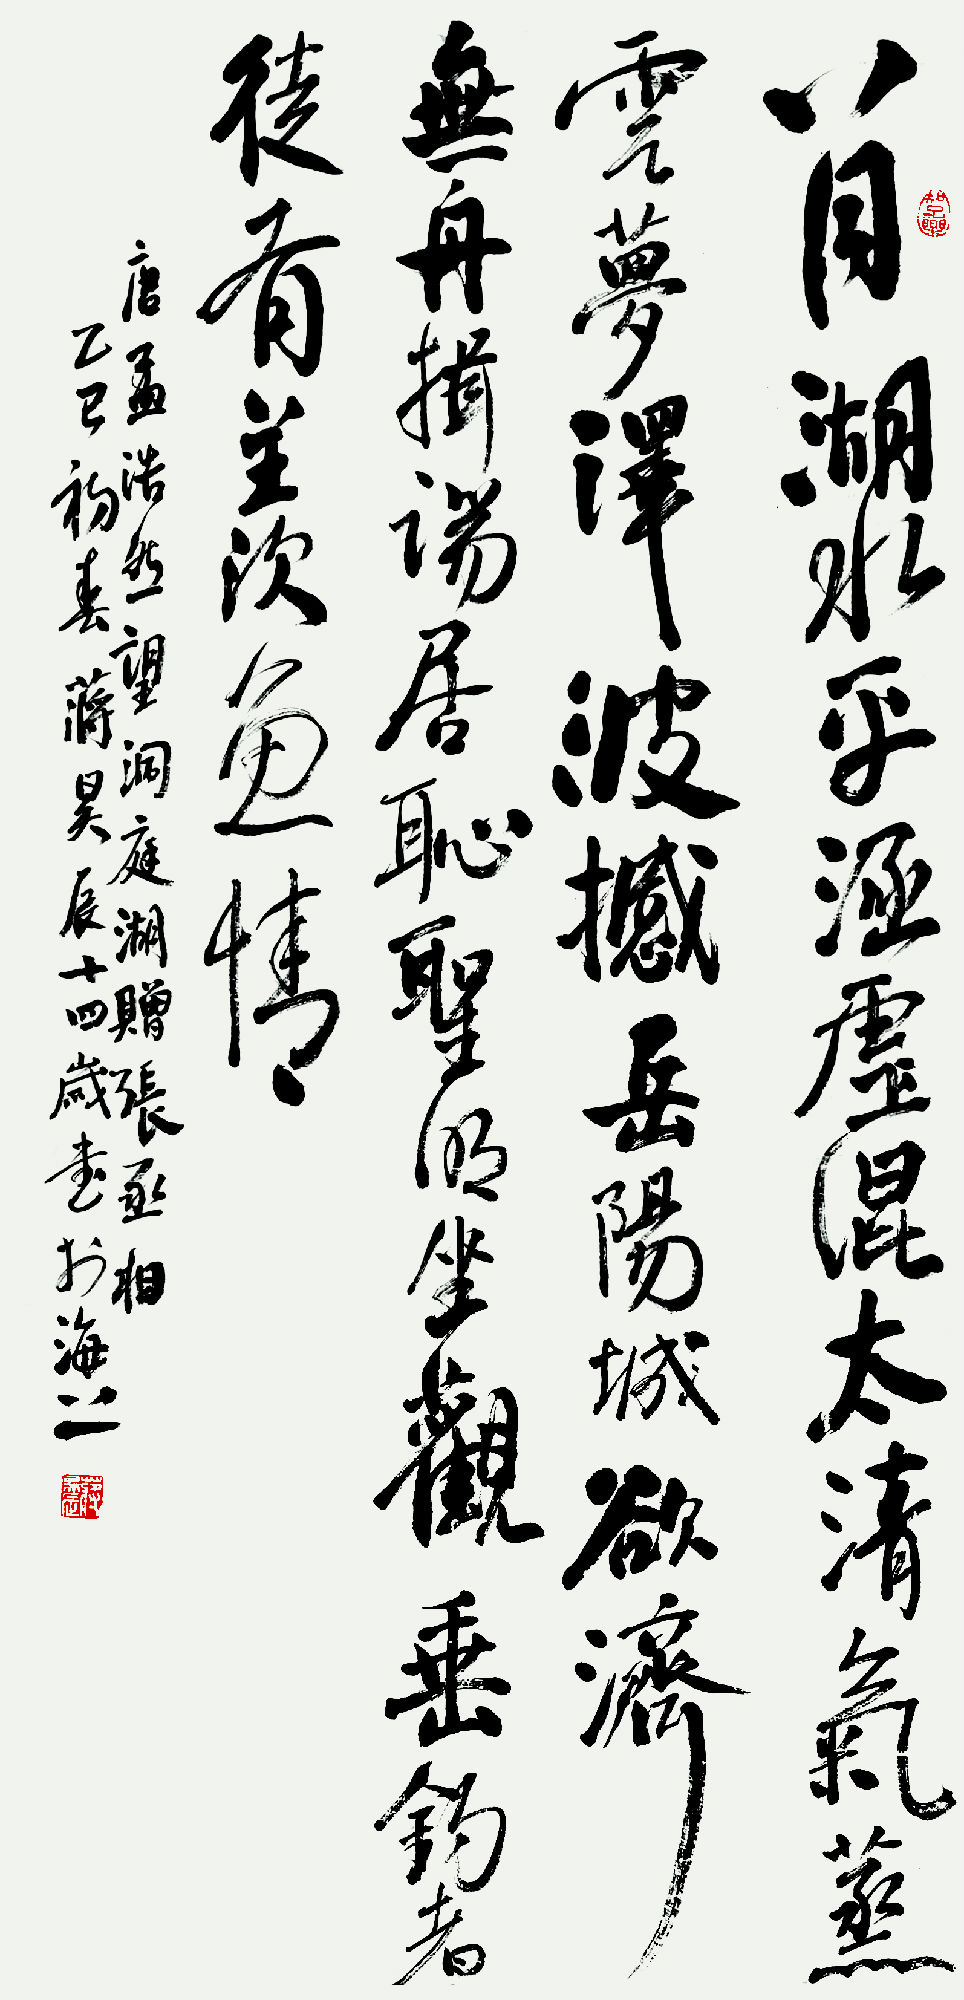 八月湖水平涵虛混太清氣蒸
雲夢澤波撼岳陽城欲濟
無舟楫端居恥聖明坐觀垂釣者
徒有羨魚情
唐孟浩然望洞庭湖贈張丞相
乙巳初春蔣昊辰十四歲书於海上